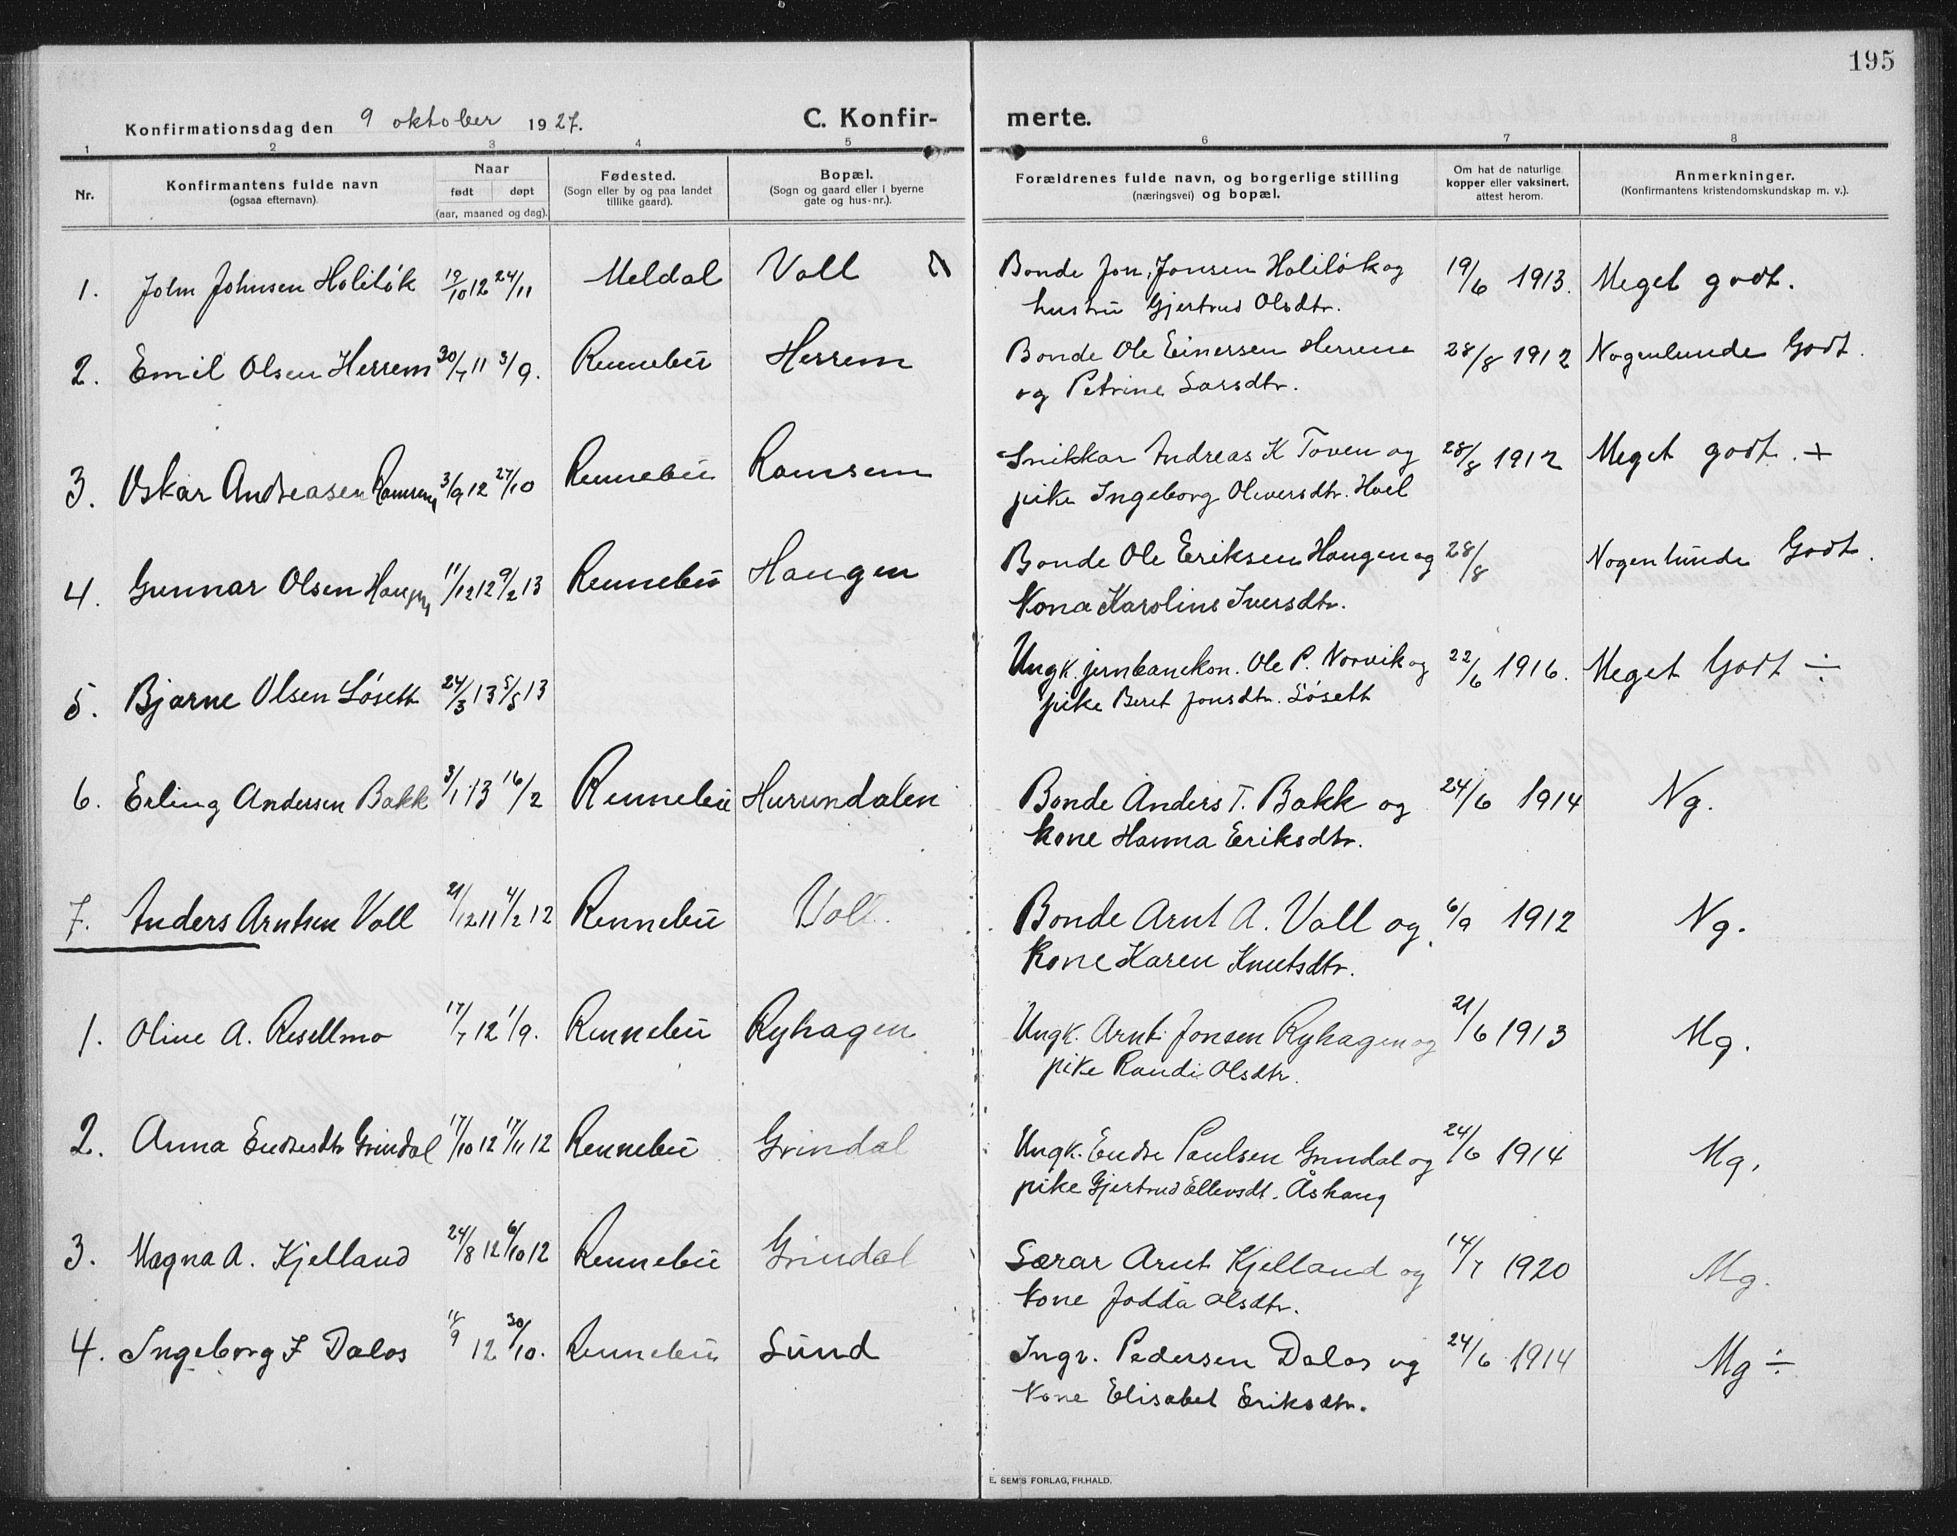 195
Konfirmationsdag den 9 oktober 1927. C. Konfir- merte.
1 2 3 4 5 6 7 8
Nr. Konfirmantens fulde navn (ogsaa efternavn). Naar født døpt (aar, maaned og dag). Fødested. (Sogn eller by og paa landet tillike gaard). Bopæl. (Sogn og gaard eller i byerne gate og hus-nr.). Forældrenes fulde navn, og borgerlige stilling (næringsvei) og bopæl. Om hat de naturlige kopper eller vaksinert, attest herom. Anmerkninger. (Konfirmantens kristendomskundskap m. v.).
1. John Johnsen Holiløk 19/10 12 24/11 Meldal Voll Bonde Jon Jonsen Holiløk og 19/6 1913. Meget godt.
hustru Gjertrud Olsdtr.
2. Emil Olsen Herrem 30/7 11 3/9. Rennebu Herrem Bonde Ole Einersen Herrem 28/8 1912 Nogenlunde Godt.
og Petrine Larsdtr.
3. Oskar Andreasen Ramsem 3/9 12 27/10 Rennebu Ramsem Snikkar Andreas K Toven og 28/8 1912 Meget godt. +
pike Ingeborg Oliversdtr. Hoel
4. Gunnar Olsen Haugen 11/12 12 9/2 13 Rennebu Haugen Bonde Ole Eriksen Haugen og 28/8 Nogenlunde Godt.
Kona Karoline Iversdtr.
5. Bjarne Olsen Løsett 24/3 13 5/5 13 Ungk. jernbanekon. Ole P. Norvik og 22/6 1916. Meget Godt ÷
pike Beret Jonsdtr. Løsett
6. Erling Andersen Bakk 3/1 13 16/2 Rennebu Hurundalen Bonde Anders T. Bakk og 24/6 1914 Ng.
kone Hanna Eriksdtr.
7. Anders Arntsen Voll 21/12 11 4/2 12 Rennebu Voll. Bonde Arnt A. Voll og 6/9 1912 Ng.
Kone Karen Knutsdtr.
1. Oline A. Resellmo 17/7 12 1/9. Rennebu Ryhagen Ungk. Arnt Jonsen Ryhagen og 21/6 1913 Mg.
pike Randi Olsdtr.
2. Anna Endresdtr Grindal 17/10 12 17/11 12 Rennebu Grindal Ungk. Endre Paulsen Grindal og 24/6 1914 Mg.
pike Gjertrud Ellevsdt. Åshaug
3. Magna A. Kjelland 24/8 12 6/10 12 Rennebu Grindal Lærar Arnt Kjelland og 14/7 1920 Mg.
Kone Jodda Olsdtr.
4. Ingeborg I Dalos 9 12 30/10. Rennebu Sund Ingv. Pedersen Dalos og 24/6 1914 Mg ÷
Kone Elisabet Eriksdtr.
E. SEM'S FORLAG, FR.HALD.